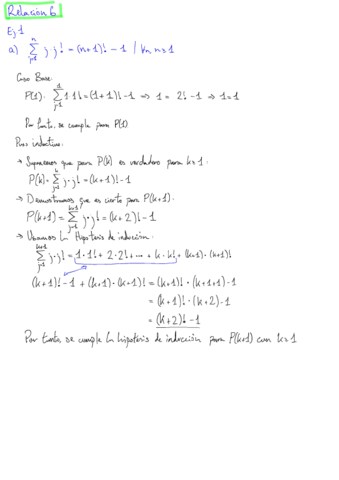 Relación 6
Ej 1
a) \sum_{j=1}^{n} j j! = (n+1)! - 1 / ∀n ≥ 1
Caso Base:
P(1): \sum_{j=1}^{1} 1 1! = (1+1)! - 1 ⇒ 1 = 2! - 1 ⇒ 1 = 1
Por tanto, se cumple para P(1)
Paso inductivo:
→ Suponemos que para P(k) es verdadero para k ≥ 1:
P(k) = \sum_{j=1}^{k} j · j! = (k+1)! - 1
→ Demostramos que es cierto para P(k+1):
P(k+1) = \sum_{j=1}^{k+1} j · j! = (k+2)! - 1
→ Usamos la Hipótesis de inducción:
\sum_{j=1}^{k+1} j · j! = 1 · 1! + 2 · 2! + ... + k · k! + (k+1) · (k+1)!
(k+1)! - 1 + (k+1) · (k+1)! = (k+1)! · (k+1+1) - 1
= (k+1)! · (k+2) - 1
= (k+2)! - 1
Por tanto se cumple la hipótesis de inducción para P(k+1) con k ≥ 1